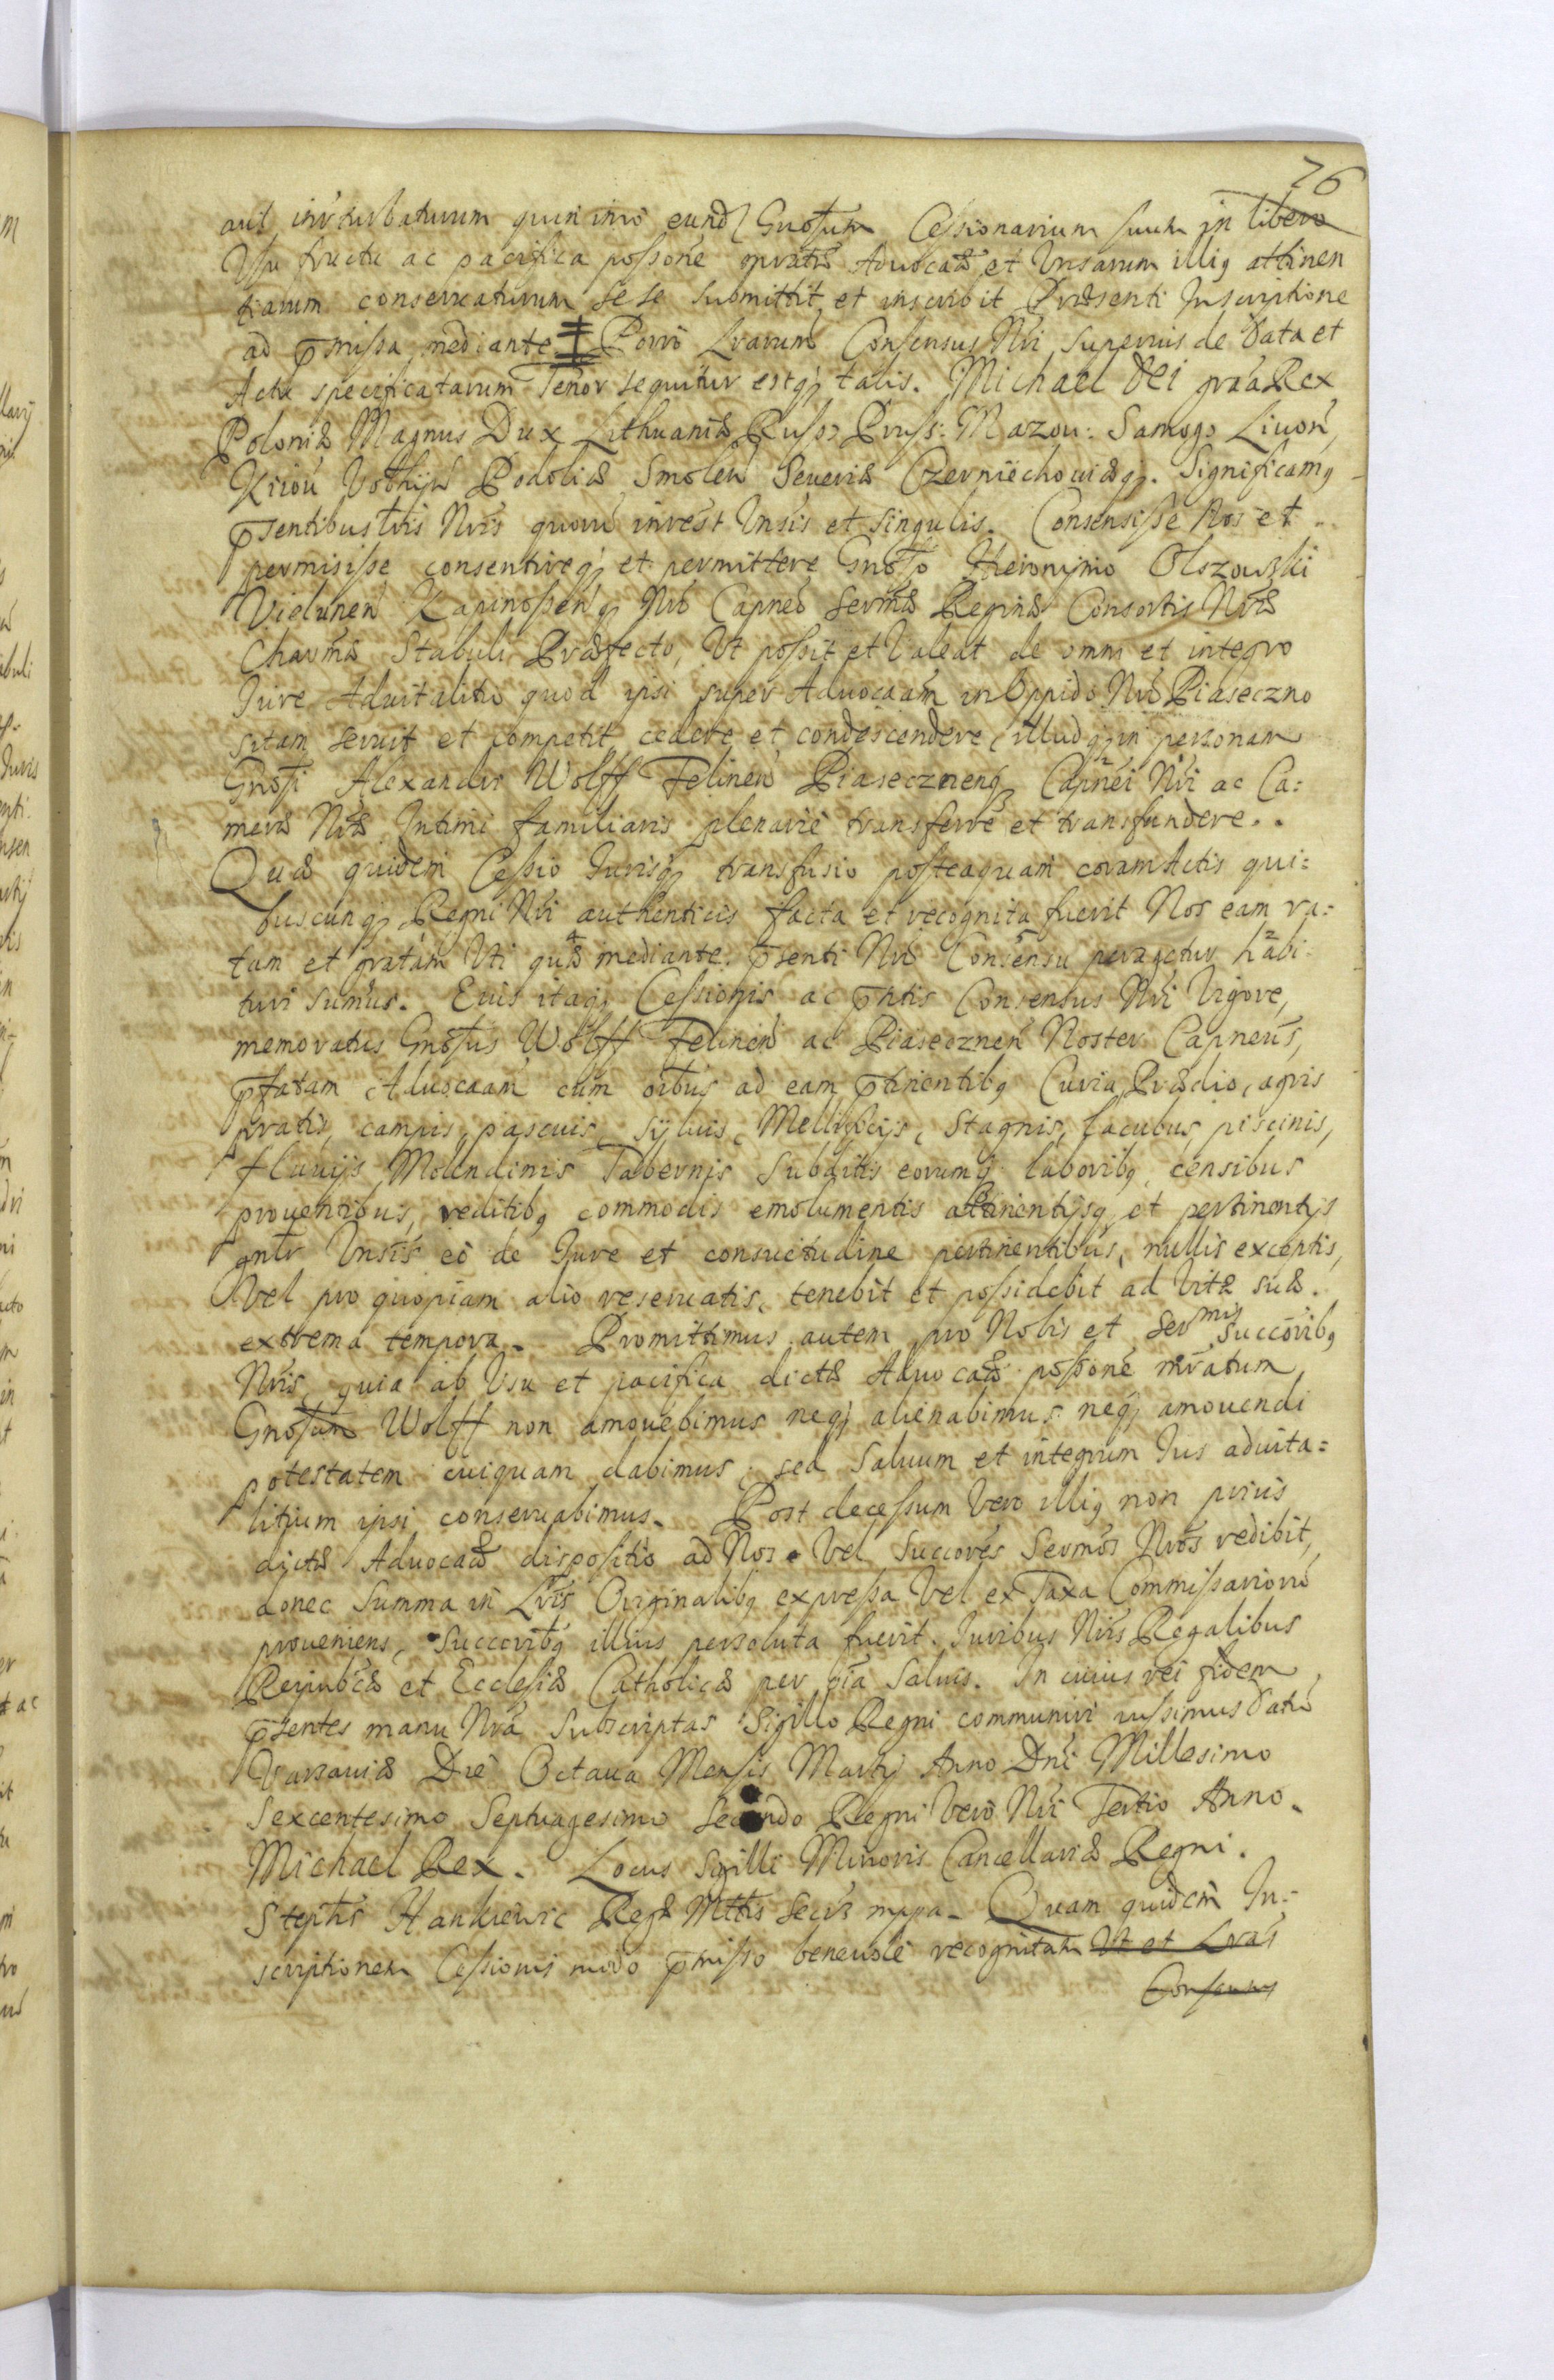 76
aut inturbaturum quin imo eund Gnosum Cessionarium suum in libero
Usu fructu ac pacifica possone pratæ Advocatæ et Unsarum illiq attinen
tiarum conservaturum se se submittit et inscribit Præsenti Inscriptione
ad pmissa mediante Porro Lrarum Consensus Nri superius de data et
Actu specificatarum Tenor sequitur estq talis. Michael Dei graa Rex
Poloniæ Magnus Dux Lithuaniæ Russ: Pruss: Mazou: Samog: Livon
Kiiou Volhijn Podoliæ Smolen Seueriæ Czerniechouiæq. Significamq
psentibus lris Nris quorum inrest Unsis et singulis. Consensisse Nos et
permisisse consentireq et permittere Gnoso Hieronymo Olszowski
Vielunen Kapinossenq Nro Capneo Sermæ Reginæ Consortis Nræ
Charmæ Stabuli Præfecto, Ut possit et Valeat de omni et integro
Iure Aduitalitio quod ipsi super Aduocaam in Oppido Nro Piaseczno
sitam seruit et competit cedere et condescendere, illudq in personam
Gnosi Alexandri Wolff Felinen Piasecznenq Capnei Nri ac Ca:
meræ Nræ Intimi familiaris plenarie transferre et transfundere.
Quæ quidem Cessio Iurisq transfusio posteaquam coram Actis qui:
buscunq Regni Nri authenticis facta et recognita fuerit Nos eam ra:
tam et gratam Uti quæ mediante psenti Nro Consensu peragetur habi:
turi sumus. Eius itaq Cessionis ac pntis Consensus Nri Vigore,
memoratus Gnosus Wolff Felinen ac Piasecznen Noster Capneus,
pfatam Aduocaam cum oibus ad eam ptinentibq Curia, Prædio, agris
pratis, campis, pascuis, syluis, Mellificijs, Stagnis, lacubus, piscinis,
fluuijs Molendinis Tabernis Subditis eorumq laboribq, censibus
prouentibus, reditibq commodis emolumentis attinentijsq et pertinentijs
gnlr Unsis eo de Iure et consuetudine pertinentibus, nullis exceptis,
Vel pro quopiam alio reseruatis, tenebit et possidebit ad Vitæ suæ
extrema tempora. Promittimus autem pro Nobis et Sermis Succoribq
Nris, quia ab Usu et pacifica dictæ Aduocaæ possone mratum
Gnosum Wolff non amouebimus neq alienabimus neq amouendi
potestatem cuiquam dabimus, sed Saluum et integrum Ius aduita=
litium ipsi conseruabimus. Post decessum Vero illiq non prius
dictæ Aduocaæ dispositio ad Nos Vel Succores Sermos Nros redibit,
donec Summa in Lris Originalibq expressa Vel ex Taxa Commissarioru
proueniens, Succoribq illius persoluta fuerit. Iuribus Nris Regalibus
Reipublicæ et Ecclesiæ Catholicæ per oia Saluis. In cuius rei fidem
psentes manu Nra Subscriptas Sigillo Regni communiri iussimus Datu
Varsauiæ Die Octaua Mensis Martij Anno Dni Millesimo
Sexcentesimo Septuagesimo Secundo Regni Vero Nri Tertio Anno.
Michael Rex. Locus Sigilli Minoris Cancellariæ Regni.
Stephs Hankiewic Regæ Mttis Secrs mppa. Quam quidem In=
scriptionem Cessionis modo pmisso beneuole recognitam Ut et Lras
Consensus